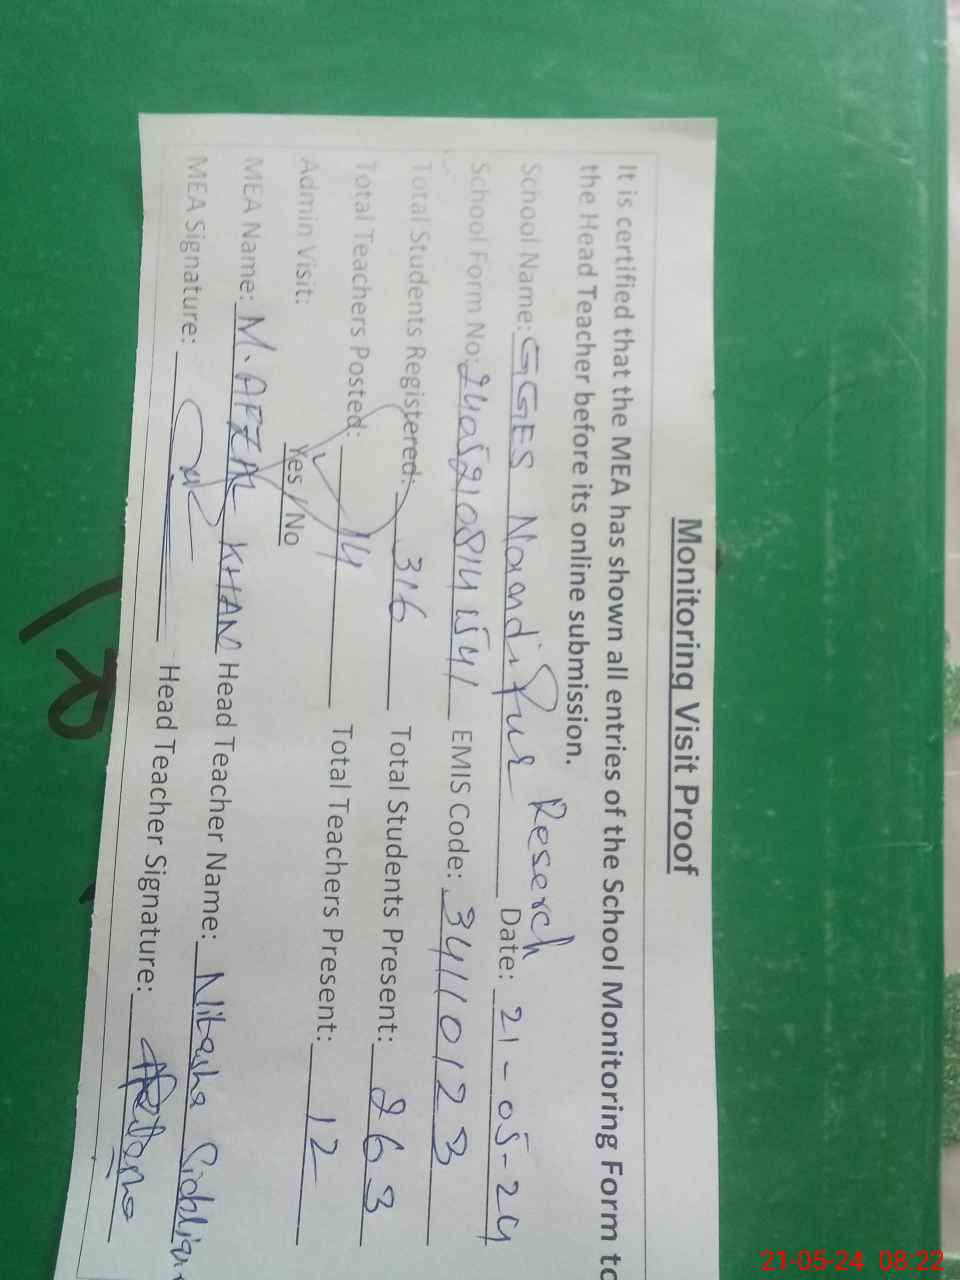 Monitoring Visit Proof
It is certified that the MEA has shown all entries of the School Monitoring Form to
the Head Teacher before its online submission.
School Name: GGES Naandi Pur Reserch Date: 21-05-24
School Form No: EMIS Code: 34110123
Total Students Registered: 316 Total Students Present: 263
Total Teachers Posted: 14 Total Teachers Present: 12
Admin Visit: Yes / No
MEA Name: M. AFZAL KHAN Head Teacher Name: Nitasha
MEA Signature: Head Teacher Signature:
21-05-24 08:22